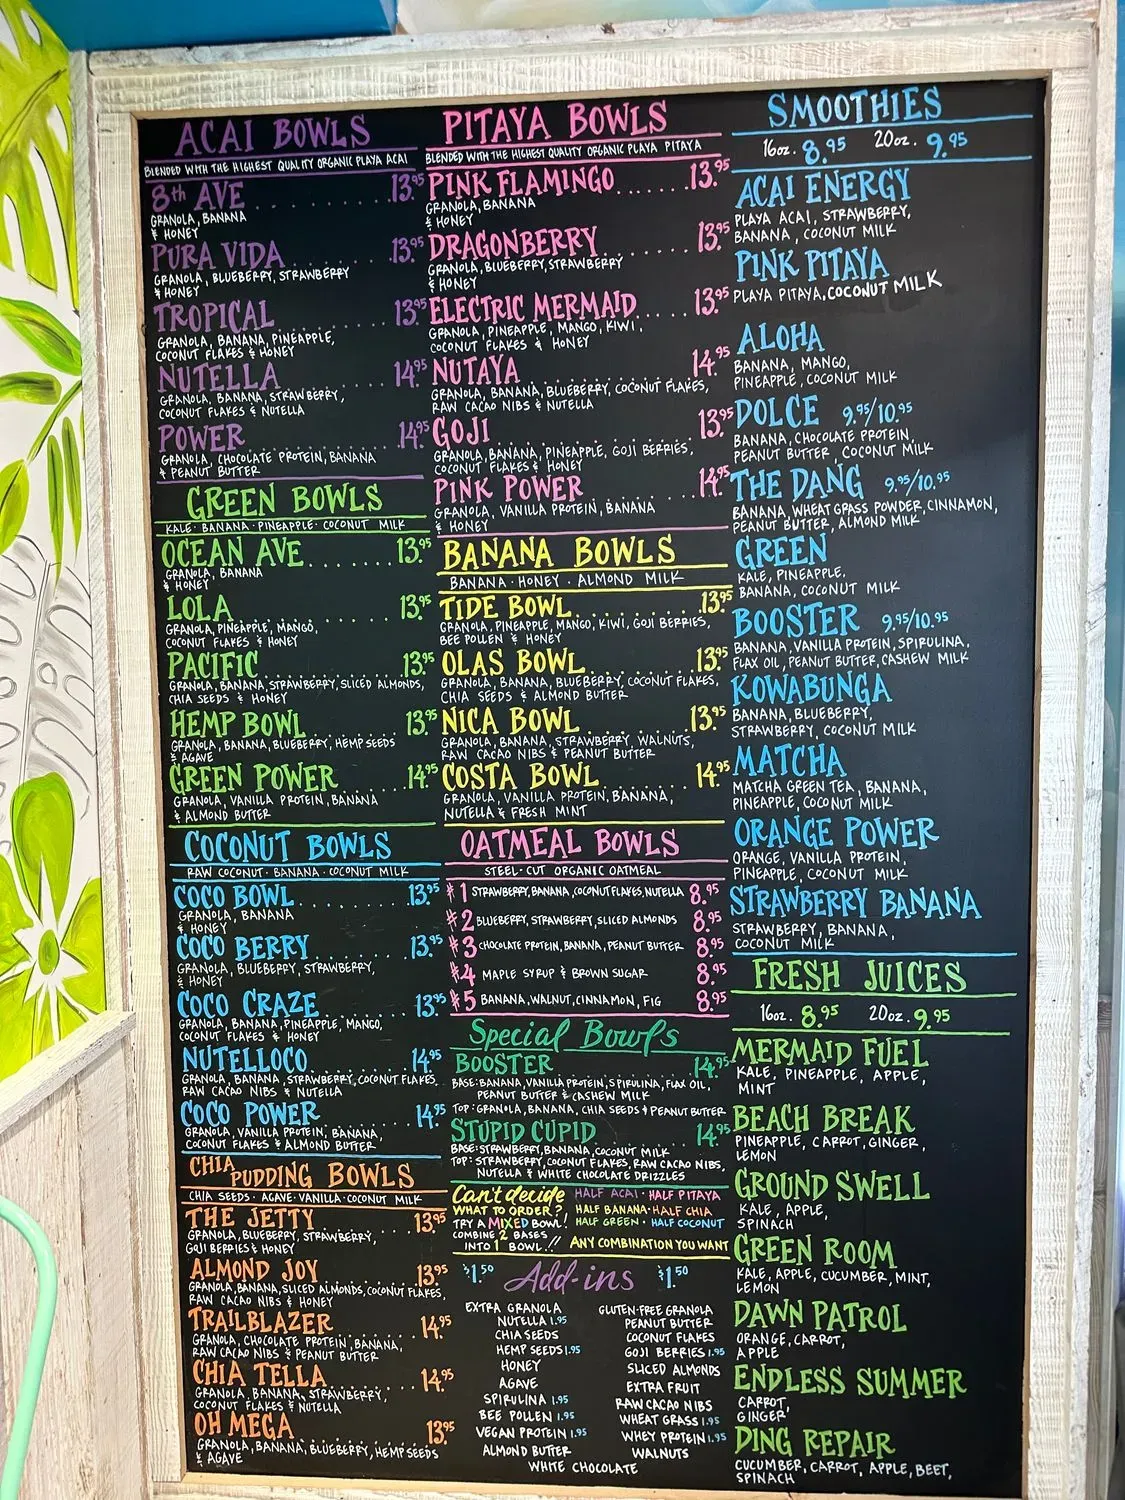 ACAI BOWLS
BLENDED WITH THE HIGHEST QUALITY ORGANIC PLAYA ACAI
8th AVE . . . . . . . . . . 13.95
GRANOLA, BANANA
& HONEY
PURA VIDA . . . . . . . . 13.95
GRANOLA, BLUEBERRY, STRAWBERRY
& HONEY
TROPICAL . . . . . . . . 13.95
GRANOLA, BANANA, PINEAPPLE,
COCONUT FLAKES & HONEY
NUTELLA . . . . . . . . 14.95
GRANOLA, BANANA, STRAWBERRY,
COCONUT FLAKES & NUTELLA
POWER . . . . . . . . . . 14.95
GRANOLA, CHOCOLATE PROTEIN, BANANA
& PEANUT BUTTER
GREEN BOWLS
KALE · BANANA · PINEAPPLE · COCONUT MILK
OCEAN AVE . . . . . . . 13.95
GRANOLA, BANANA
& HONEY
LOLA . . . . . . . . . . . 13.95
GRANOLA, PINEAPPLE, MANGO,
COCONUT FLAKES & HONEY
PACIFIC . . . . . . . . . . 13.95
GRANOLA, BANANA, STRAWBERRY, SLICED ALMONDS,
CHIA SEEDS & HONEY
HEMP BOWL . . . . . . . 13.95
GRANOLA, BANANA, BLUEBERRY, HEMP SEEDS
& AGAVE
GREEN POWER . . . . . 14.95
GRANOLA, VANILLA PROTEIN, BANANA
& ALMOND BUTTER
COCONUT BOWLS
RAW COCONUT · BANANA · COCONUT MILK
COCO BOWL . . . . . . . 13.95
GRANOLA, BANANA
& HONEY
COCO BERRY . . . . . . . 13.95
GRANOLA, BLUEBERRY, STRAWBERRY,
& HONEY
COCO CRAZE . . . . . . . 13.95
GRANOLA, BANANA, PINEAPPLE, MANGO,
COCONUT FLAKES & HONEY
NUTELLOCO . . . . . . . 14.95
GRANOLA, BANANA, STRAWBERRY, COCONUT FLAKES,
RAW CACAO NIBS & NUTELLA
COCO POWER . . . . . . . 14.95
GRANOLA, VANILLA PROTEIN, BANANA,
COCONUT FLAKES & ALMOND BUTTER
CHIA PUDDING BOWLS
CHIA SEEDS · AGAVE · VANILLA · COCONUT MILK
THE JETTY . . . . . . . 13.95
GRANOLA, BLUEBERRY, STRAWBERRY,
GOJI BERRIES & HONEY
ALMOND JOY . . . . . . . 13.95
GRANOLA, BANANA, SLICED ALMONDS, COCONUT FLAKES,
RAW CACAO NIBS & HONEY
TRAILBLAZER . . . . . . . 14.95
GRANOLA, CHOCOLATE PROTEIN, BANANA,
RAW CACAO NIBS & PEANUT BUTTER
CHIA TELLA . . . . . . . 14.95
GRANOLA, BANANA, STRAWBERRY,
COCONUT FLAKES & NUTELLA
OH MEGA . . . . . . . 13.95
GRANOLA, BANANA, BLUEBERRY, HEMP SEEDS
& AGAVE
PITAYA BOWLS
BLENDED WITH THE HIGHEST QUALITY ORGANIC PLAYA PITAYA
PINK FLAMINGO . . . . . . . 13.95
GRANOLA, BANANA
& HONEY
DRAGONBERRY . . . . . . . 13.95
GRANOLA, BLUEBERRY, STRAWBERRY
& HONEY
ELECTRIC MERMAID . . . . 13.95
GRANOLA, PINEAPPLE, MANGO, KIWI,
COCONUT FLAKES & HONEY
NUTAYA . . . . . . . . . . 14.95
GRANOLA, BANANA, BLUEBERRY, COCONUT FLAKES,
RAW CACAO NIBS & NUTELLA
GOJI . . . . . . . . . . . 13.95
GRANOLA, BANANA, PINEAPPLE, GOJI BERRIES,
COCONUT FLAKES & HONEY
PINK POWER . . . . . . . 14.95
GRANOLA, VANILLA PROTEIN, BANANA
& HONEY
BANANA BOWLS
BANANA · HONEY · ALMOND MILK
TIDE BOWL . . . . . . . . 13.95
GRANOLA, PINEAPPLE, MANGO, KIWI, GOJI BERRIES,
BEE POLLEN & HONEY
OLAS BOWL . . . . . . . . 13.95
GRANOLA, BANANA, BLUEBERRY, COCONUT FLAKES,
CHIA SEEDS & ALMOND BUTTER
NICA BOWL . . . . . . . . 13.95
GRANOLA, BANANA, STRAWBERRY, WALNUTS,
RAW CACAO NIBS & PEANUT BUTTER
COSTA BOWL . . . . . . . 14.95
GRANOLA, VANILLA PROTEIN, BANANA,
NUTELLA & FRESH MINT
OATMEAL BOWLS
STEEL-CUT ORGANIC OATMEAL
#1 STRAWBERRY, BANANA, COCONUT FLAKES, NUTELLA 8.95
#2 BLUEBERRY, STRAWBERRY, SLICED ALMONDS 8.95
#3 CHOCOLATE PROTEIN, BANANA, PEANUT BUTTER 8.95
#4 MAPLE SYRUP & BROWN SUGAR 8.95
#5 BANANA, WALNUT, CINNAMON, FIG 8.95
Special Bowls
BOOSTER . . . . . . . . 14.95
BASE: BANANA, VANILLA PROTEIN, SPIRULINA, FLAX OIL,
PEANUT BUTTER & CASHEW MILK
TOP: GRANOLA, BANANA, CHIA SEEDS & PEANUT BUTTER
STUPID CUPID . . . . . . . 14.95
BASE: STRAWBERRY, BANANA, COCONUT MILK
TOP: STRAWBERRY, COCONUT FLAKES, RAW CACAO NIBS,
NUTELLA & WHITE CHOCOLATE DRIZZLES
Can't decide
WHAT TO ORDER?
TRY A MIXED BOWL!
COMBINE 2 BASES
INTO 1 BOWL!!
HALF ACAI · HALF PITAYA
HALF BANANA · HALF CHIA
HALF GREEN · HALF COCONUT
ANY COMBINATION YOU WANT
$1.50 Add-ins $1.50
EXTRA GRANOLA
NUTELLA 1.95
CHIA SEEDS
HEMP SEEDS 1.95
HONEY
AGAVE
SPIRULINA 1.95
BEE POLLEN 1.95
VEGAN PROTEIN 1.95
ALMOND BUTTER
GLUTEN-FREE GRANOLA
PEANUT BUTTER
COCONUT FLAKES
GOJI BERRIES 1.95
SLICED ALMONDS
EXTRA FRUIT
RAW CACAO NIBS
WHEAT GRASS 1.95
WHEY PROTEIN 1.95
WALNUTS
WHITE CHOCOLATE
SMOOTHIES
16oz. 8.95 20oz. 9.95
ACAI ENERGY
PLAYA ACAI, STRAWBERRY,
BANANA, COCONUT MILK
PINK PITAYA
PLAYA PITAYA, COCONUT MILK
ALOHA
BANANA, MANGO,
PINEAPPLE, COCONUT MILK
DOLCE 9.95/10.95
BANANA, CHOCOLATE PROTEIN,
PEANUT BUTTER, COCONUT MILK
THE DANG 9.95/10.95
BANANA, WHEAT GRASS POWDER, CINNAMON,
PEANUT BUTTER, ALMOND MILK
GREEN
KALE, PINEAPPLE,
BANANA, COCONUT MILK
BOOSTER 9.95/10.95
BANANA, VANILLA PROTEIN, SPIRULINA,
FLAX OIL, PEANUT BUTTER, CASHEW MILK
KOWABUNGA
BANANA, BLUEBERRY,
STRAWBERRY, COCONUT MILK
MATCHA
MATCHA GREEN TEA, BANANA,
PINEAPPLE, COCONUT MILK
ORANGE POWER
ORANGE, VANILLA PROTEIN,
PINEAPPLE, COCONUT MILK
STRAWBERRY BANANA
STRAWBERRY, BANANA,
COCONUT MILK
FRESH JUICES
16oz. 8.95 20oz. 9.95
MERMAID FUEL
KALE, PINEAPPLE, APPLE,
MINT
BEACH BREAK
PINEAPPLE, CARROT, GINGER,
LEMON
GROUND SWELL
KALE, APPLE,
SPINACH
GREEN ROOM
KALE, APPLE, CUCUMBER, MINT,
LEMON
DAWN PATROL
ORANGE, CARROT,
APPLE
ENDLESS SUMMER
CARROT,
GINGER
DING REPAIR
CUCUMBER, CARROT, APPLE, BEET,
SPINACH